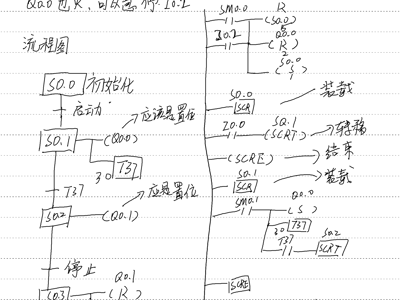 Q0.0 也灭,可以急停 I0.2
流程图
S0.0 初始化
启动
应该是置位
S0.1
(Q0.0)
30 T37
T37
应是置位
S0.2
(Q0.1)
停止
Q0.1
S0.3
(R)
SM0.0
R
(S0.0)
I0.2
Q0.0
(R)
2
S0.0
(S)
1
S0.0
SCR
装载
I0.0
S0.1
(SCRT)
转移
(SCRE)
结束
S0.1
SCR
装载
SM0.1
Q0.0
(S)
30 T37
T37
S0.2
SCRT
SCRE